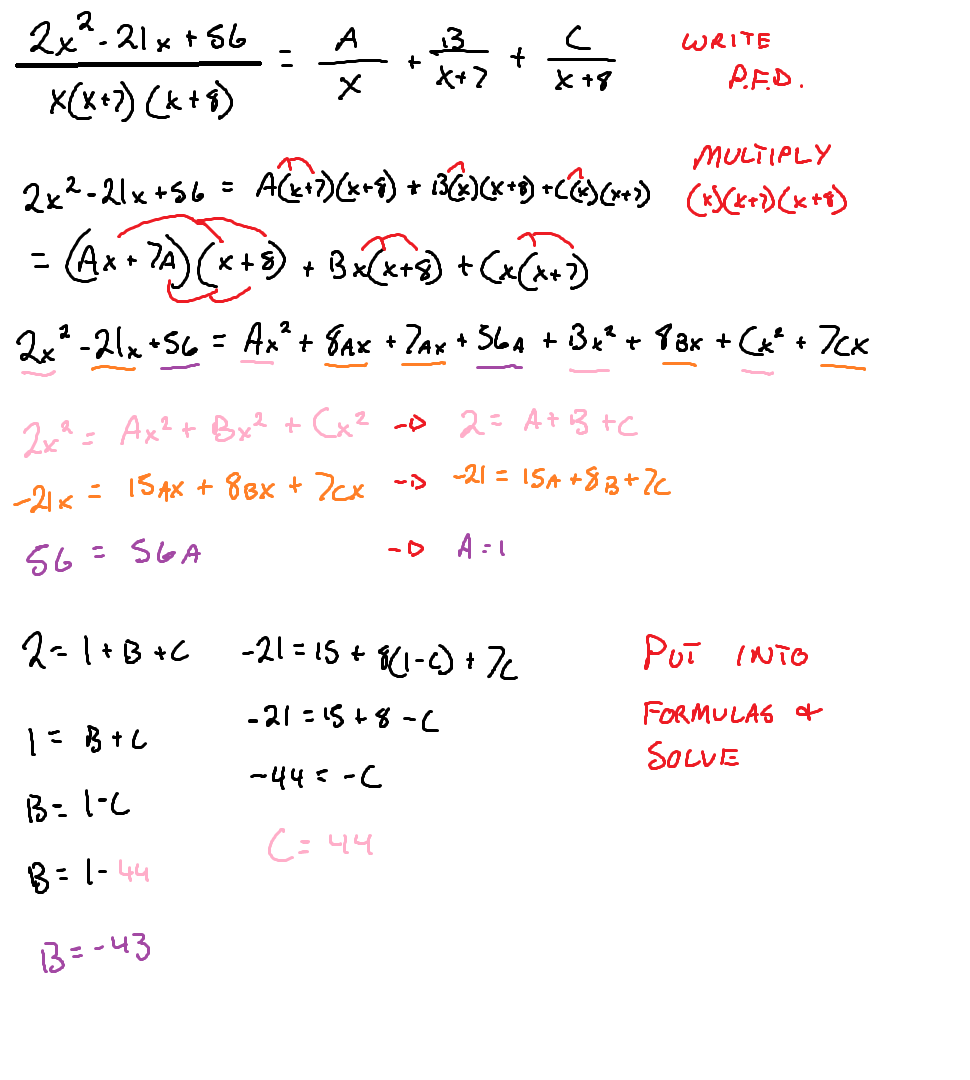 (2x² - 21x + 56)/(x(x+7)(x+8)) = A/x + B/(x+7) + C/(x+8) WRITE P.F.D.
MULTIPLY (x)(x+7)(x+8)
2x² - 21x + 56 = A(x+7)(x+8) + B(x)(x+8) + C(x)(x+7)
= (Ax + 7A)(x+8) + Bx(x+8) + Cx(x+7)
2x² - 21x + 56 = Ax² + 8Ax + 7Ax + 56A + Bx² + 8Bx + Cx² + 7Cx
2x² = Ax² + Bx² + Cx² → 2 = A+B+C
-21x = 15Ax + 8Bx + 7Cx → -21 = 15A + 8B + 7C
56 = 56A → A = 1
2 = 1 + B + C
1 = B + C
B = 1-C
B = 1-44
B = -43
-21 = 15 + 8(1-C) + 7C
-21 = 15 + 8 - C
-44 = -C
C = 44
PUT INTO
FORMULAS &
SOLVE